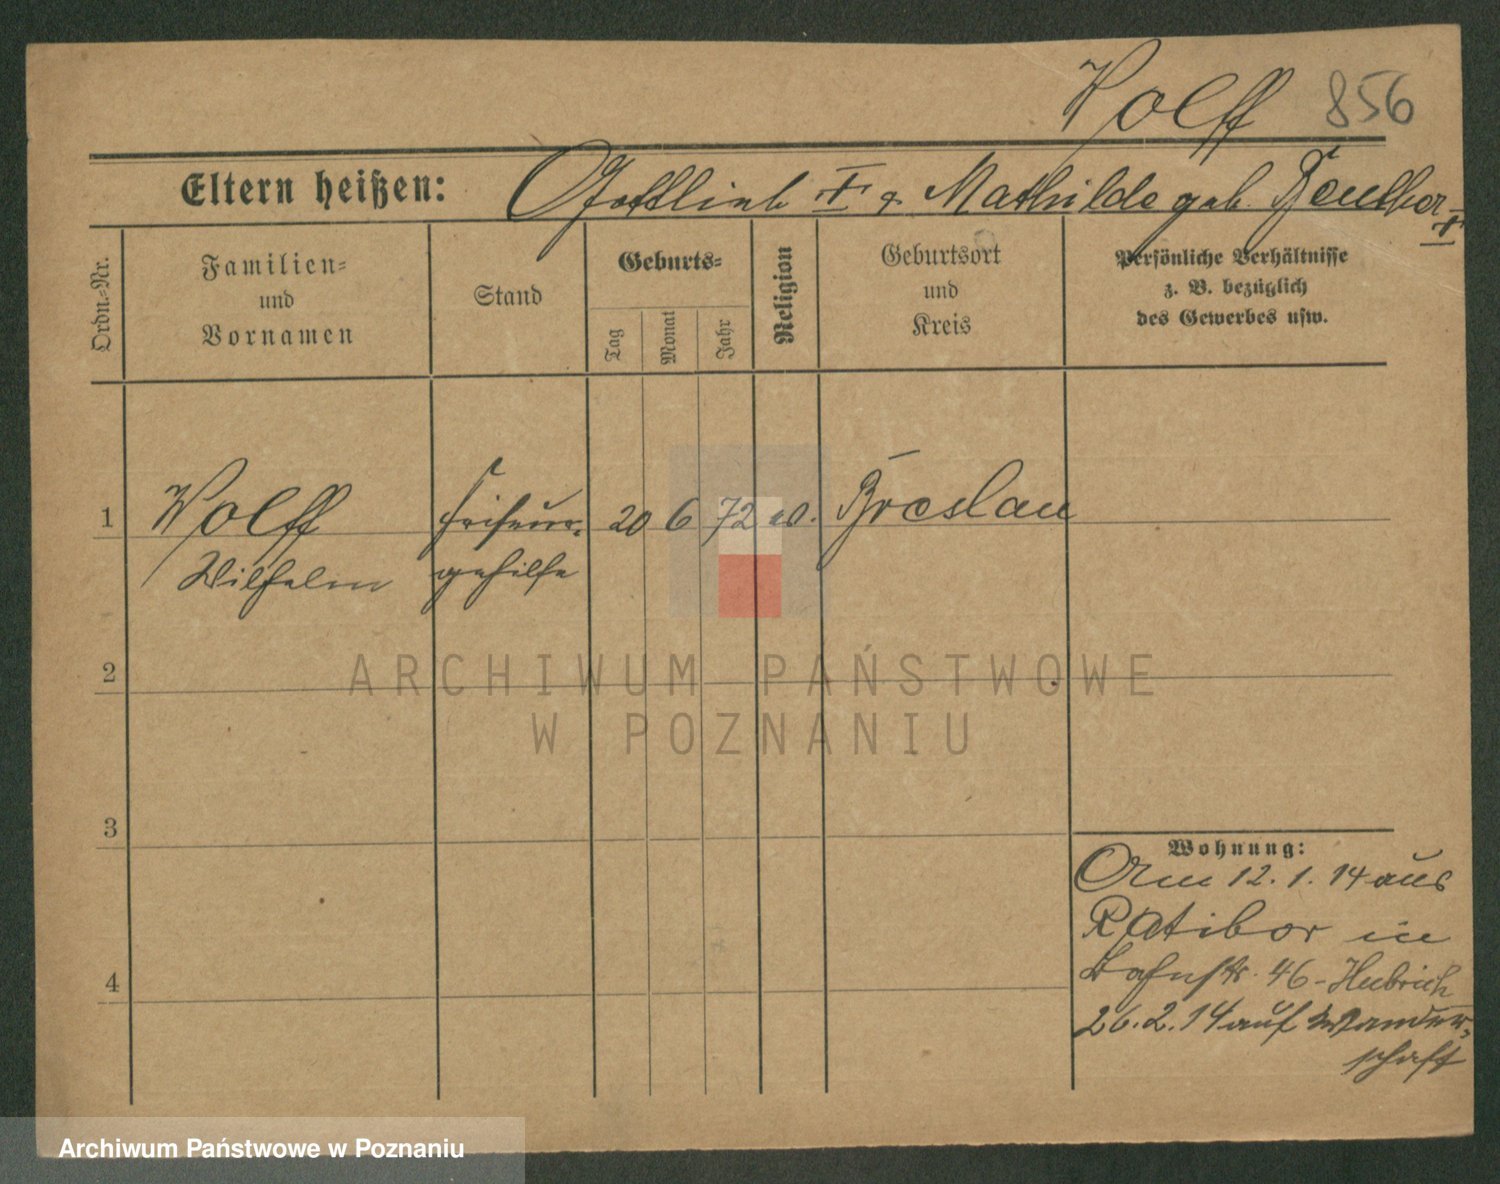 Wolff 856
Eltern heißen: Gottlieb † u. Mathilde geb. †
Ordn.-Nr.
Familien-
und
Vornamen
Stand
Geburts-
Tag
Monat
Jahr
Religion
Geburtsort
und
Kreis
Persönliche Verhältnisse
z. B. bezüglich
des Gewerbes usw.
1 Wolff Friseur- 20 6 72 Breslau
Wilhelm gehilfe
2
ARCHIWUM PAŃSTWOWE
W POZNANIU
3
Wohnung:
Am 12. 1. 14 aus
Ratibor in
Bahnstr. 46 - Hubrich
4
26. 2. 14 auf Wander-
schaft
Archiwum Państwowe w Poznaniu